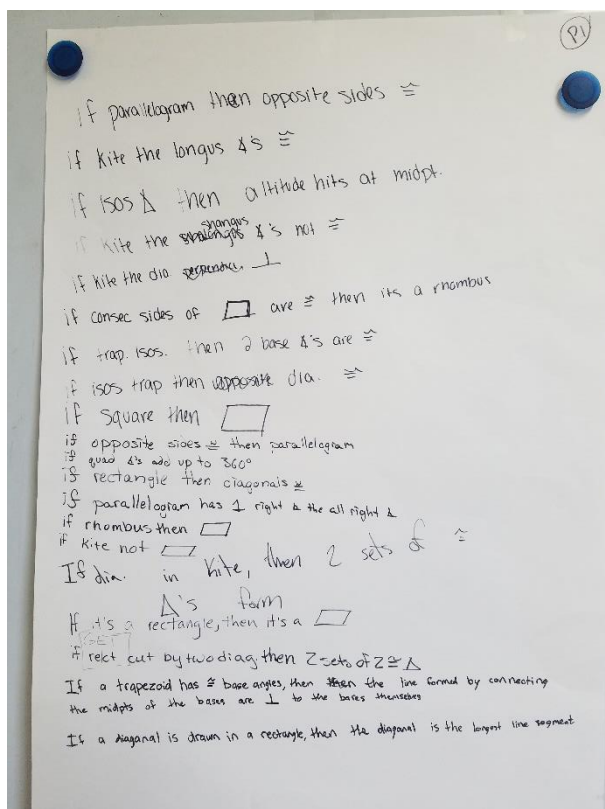 P1
if parallelogram then opposite sides ≅
if kite the longus ∡'s ≅
if isos Δ then altitude hits at midpt.
if kite the shangus ∡'s not ≅
if kite the dia ⊥
if consec sides of ▱ are ≅ then its a rhombus
if trap. isos. then 2 base ∡'s are ≅
if isos trap then dia. ≅
if square then ▱
if opposite sides ≅ then parallelogram
if quad ∡'s add up to 360°
if rectangle then diagonals ≅
if parallelogram has 1 right ∡ the all right ∡
if rhombus then ▱
if kite not ▱
If dia. in kite, then 2 sets of ≅
Δ's form
If it's a rectangle, then it's a ▱
if rect cut by two diag then 2 sets of 2 ≅ Δ
If a trapezoid has ≅ base angles, then the line formed by connecting
the midpts of the bases are ⊥ to the bases themselves
If a diaganal is drawn in a rectangle, then the diagonal is the longest line segment